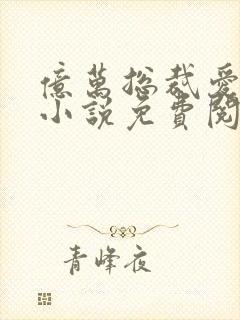 億萬總裁愛
小說免費閱
青峰夜